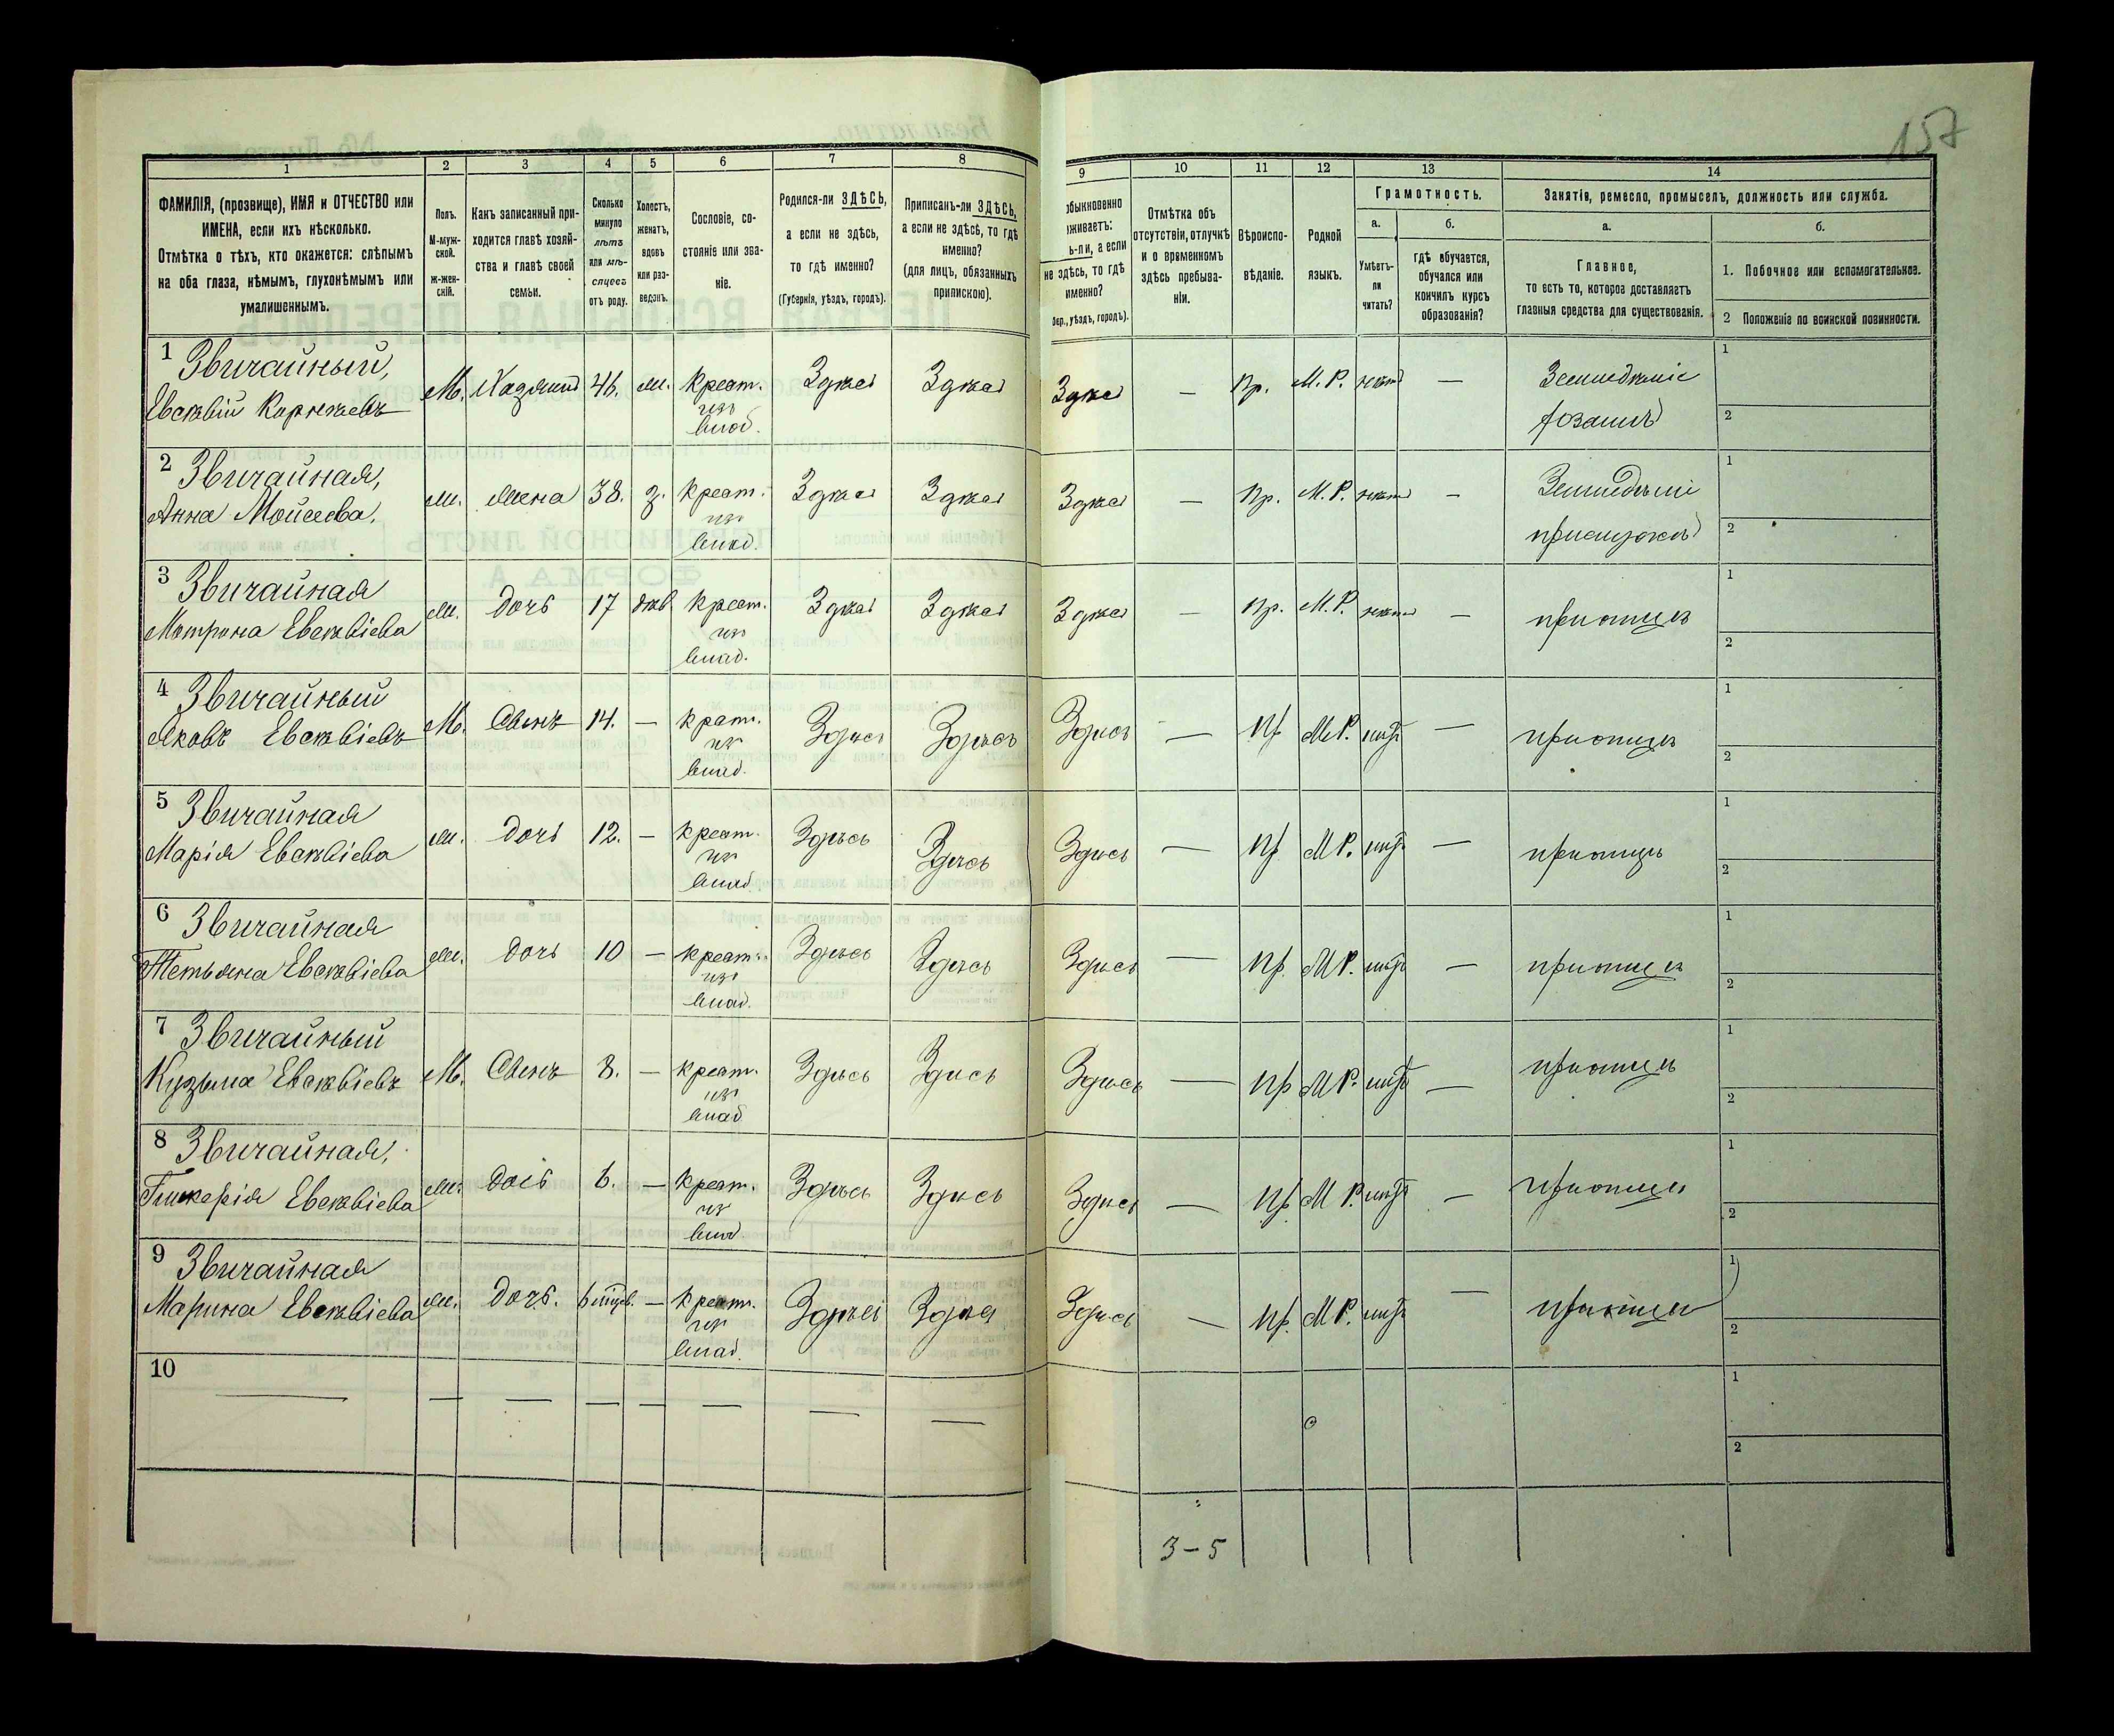 157
1
2
3
4
5
6
7
8
9
10
11
12
13
14
ФАМИЛІЯ, (прозвище), ИМЯ и ОТЧЕСТВО или
ИМЕНА, если ихъ нѣсколько.
Отмѣтка о тѣхъ, кто окажется: слѣпымъ
на оба глаза, нѣмымъ, глухонѣмымъ или
умалишеннымъ.
Полъ.
М-муж-
ской.
Ж-жен-
скій.
Какъ записанный при-
ходится главѣ хозяй-
ства и главѣ своей
семьи.
Сколько
минуло
лѣтъ
или мѣ-
сяцевъ
отъ роду.
Холостъ,
женатъ,
вдовъ
или раз-
веденъ.
Сословіе, со-
стояніе или зва-
ніе.
Родился-ли ЗДѢСЬ,
а если не здѣсь,
то гдѣ именно?
(Губернія, уѣздъ, городъ).
Приписанъ-ли ЗДѢСЬ,
а если не здѣсь, то гдѣ
именно?
(для лицъ, обязанныхъ
припискою).
обыкновенно
живаетъ:
ь-ли, а если
не здѣсь, то гдѣ
именно?
бер., уѣздъ, городъ).
Отмѣтка объ
отсутствіи, отлучкѣ
и о временномъ
здѣсь пребыва-
ніи.
Вѣроиспо-
вѣданіе.
Родной
языкъ.
Грамотность.
а.
Умѣетъ-
ли
читать?
б.
гдѣ обучается,
обучался или
кончилъ курсъ
образованія?
Занятія, ремесло, промыселъ, должность или служба.
а.
Главное,
то есть то, которое доставляетъ
главныя средства для существованія.
б.
1. Побочное или вспомогательное.
2 Положеніе по воинской повинности.
1 Звичайный, М. Хозяинъ 46. ж. крест. Здѣсь Здѣсь Здѣсь — Пр. М. Р. нѣтъ — Земледѣліе 1
Евсевій Корнѣевъ изъ влад. хозяинъ 2
2 Звичайная, ж. жена 38. з. крест. Здѣсь Здѣсь Здѣсь — Пр. М. Р. нѣтъ — Земледѣліе 1
Анна Моисеева. изъ влад. 2
3 Звичайная ж. дочь 17 дѣв крест. Здѣсь Здѣсь Здѣсь — Пр. М. Р. нѣтъ — при отцѣ 1
Мотрона Евсевіева изъ влад. 2
4 Звичайный М. Сынъ 14. — крест. Здѣсь Здѣсь Здѣсь — Пр М.Р. нѣтъ — при отцѣ 1
Яковъ Евсевіевъ изъ влад. 2
5 Звичайная ж. дочь 12. — крест. Здѣсь Здѣсь Здѣсь — Пр М Р. нѣтъ — при отцѣ 1
Марія Евсевіева изъ влад. 2
6 Звичайная ж. дочь 10 — крест. Здѣсь Здѣсь Здѣсь — Пр. М Р. нѣтъ — при отцѣ 1
Тетьяна Евсевіева изъ влад. 2
7 Звичайный М. Сынъ 8. — крест. Здѣсь Здѣсь Здѣсь — Пр М Р. нѣтъ — при отцѣ 1
Кузьма Евсевіевъ изъ влад 2
8 Звичайная, ж. дочь 6. — крест. Здѣсь Здѣсь Здѣсь — Пр. М Р. нѣтъ — при отцѣ 1
Гликерія Евсевіева из влад. 2
9 Звичайная ж. дочь. 6 — крест. Здѣсь Здѣсь Здѣсь — Пр. М Р. нѣтъ — при отцѣ 1
Марина Евсевіева изъ влад. 2
10 — — — — — — — — 1
2
3 – 5